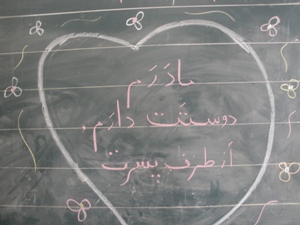 مادَرَم
دوستَت دارم.
اَز طرف پسرت